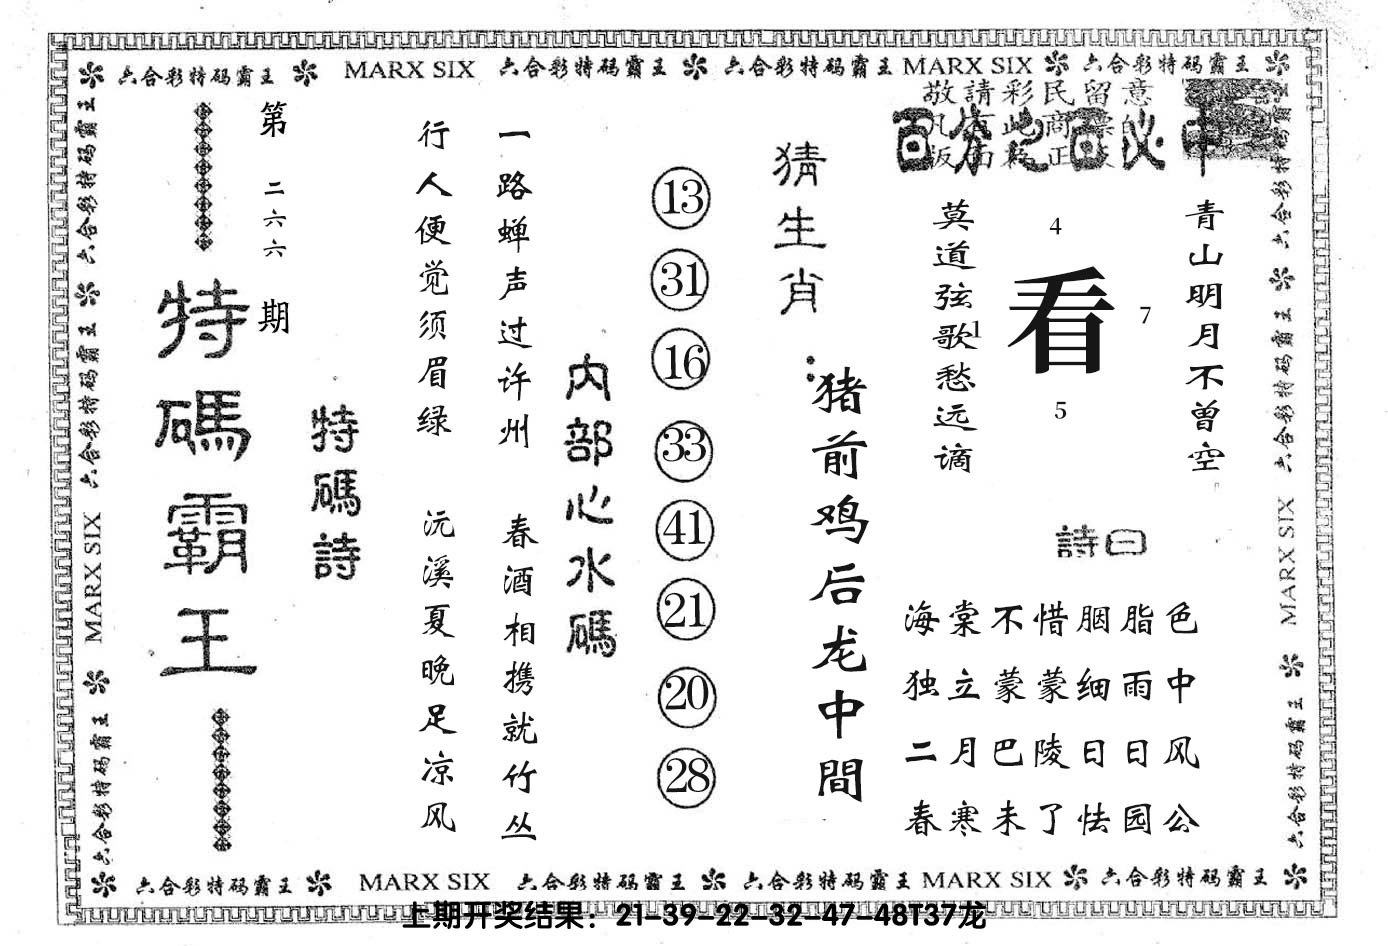 六合彩特码霸王 MARX SIX 六合彩特码霸王 六合彩特码霸王 MARX SIX 六合彩特码霸王
敬請彩民留意
百分之百必中
青山明月不曾空
看
4
7
1
5
莫道弦歌愁远谪
詩曰
海棠不惜胭脂色
独立蒙蒙细雨中
二月巴陵日日风
春寒未了怯园公
猜生肖：
猪前鸡后龙中間
13
31
16
33
41
21
20
28
内部心水碼
一路蝉声过许州 春酒相携就竹丛
行人便觉须眉绿 沅溪夏晚足凉风
特碼詩
第二六六期
特碼霸王
六合彩特码霸王 六合彩特码霸王 MARX SIX 六合彩特码霸王
六合彩特码霸王 六合彩特码霸王 MARX SIX 六合彩特码霸王
六合彩特码霸王 MARX SIX 六合彩特码霸王 六合彩特码霸王 MARX SIX 六合彩特码霸王
上期开奖结果：21-39-22-32-47-48T37龙